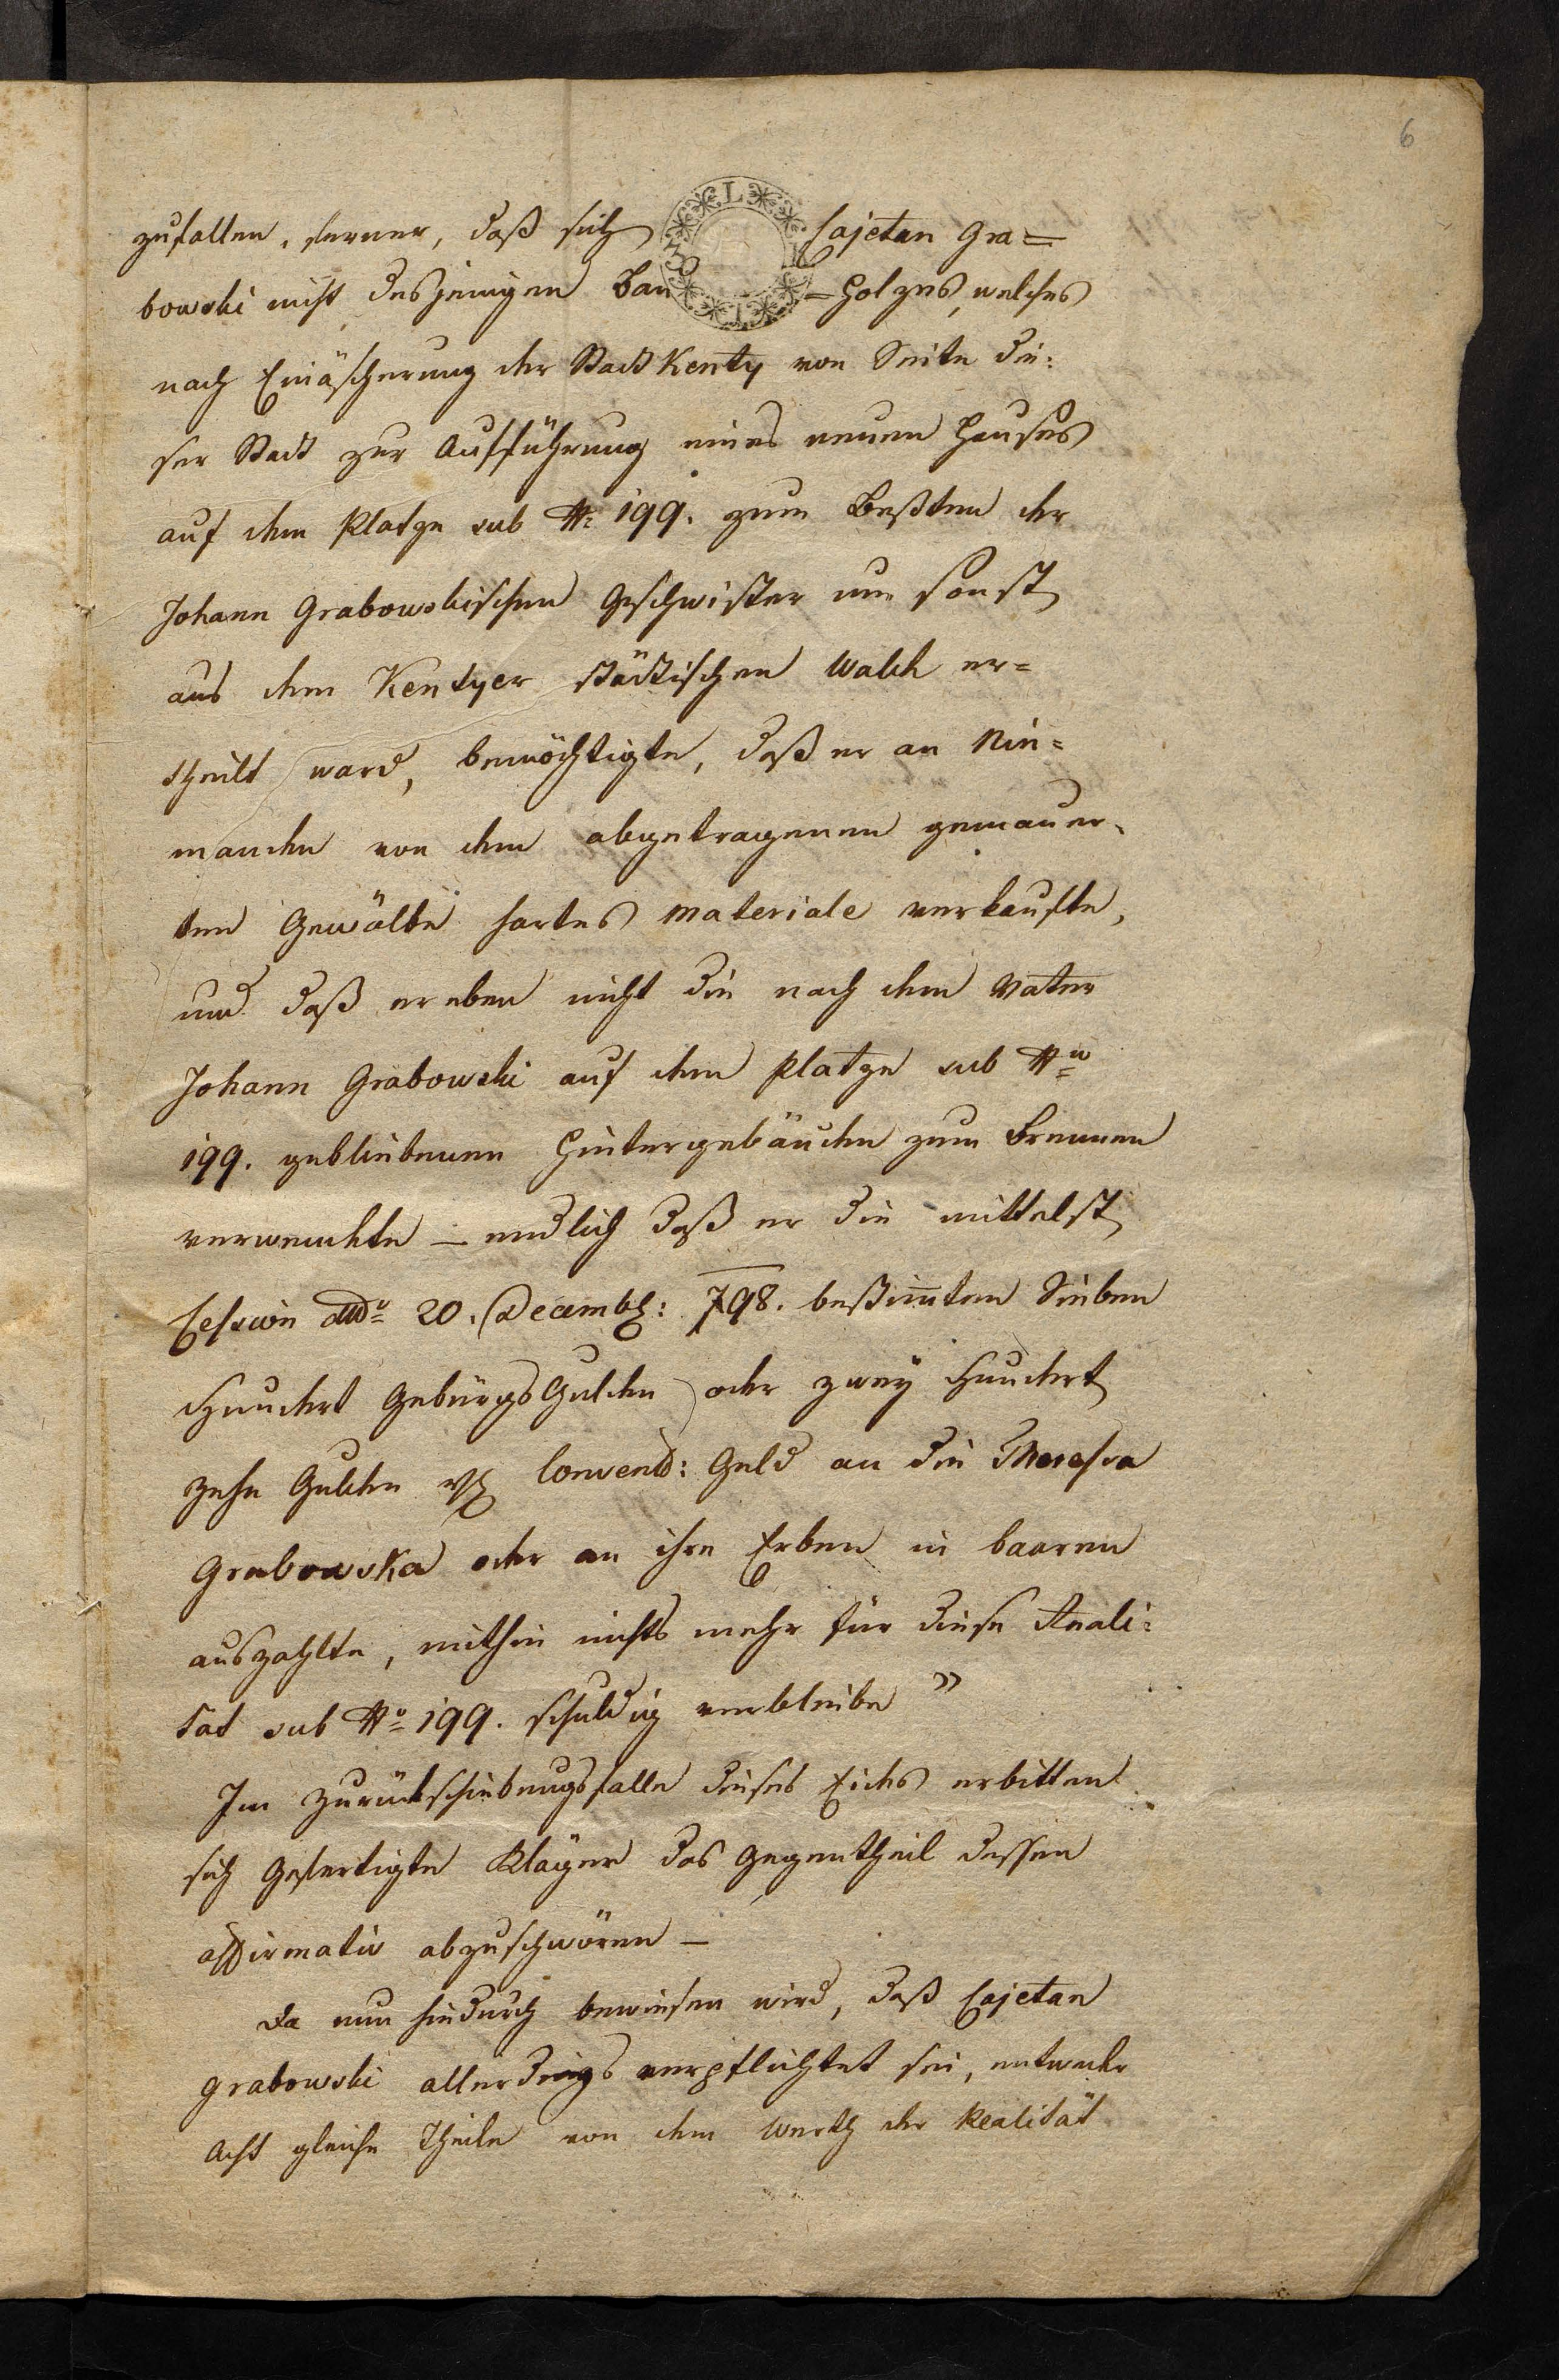 6
zufallen, ferner, daß sich Cajetan Gra=
bowski nicht desjenigen Bau=Holzes, welches
nach Einäscherung der Stadt Kenty von Seite die:
ser Stadt zur Aufführung eines neuen Hauses
auf dem Platze sub No 199. zum Beßten der
Johann Grabowskischen Geschwister um sonst
aus dem Kentyer städtischen Wald er=
theilt ward, bemächtigte, daß er an Nie=
manden von dem abgetragenen gemauer=
ten Gewölbe hartes Materiale verkaufte,
und daß er eben nicht die nach dem Vater
Johann Grabowski auf dem Platze sub No
199. gebliebenen Hintergebäude zum Brennen
verwendete – endlich daß er die mittelst
Cession ddo 20. Decemb: 798. bestim̅ten Sieben
Hundert GebürgsGulden oder zwey Hundert
zehn Gulden Convent: Geld an die Theresia
Grabowska oder an ihre Erben in baaren
auszahlte, mithin nichts mehr für diese Reali:
tät sub No 199. schuldig verbleibe "
Im Zurückschiebungsfalle dieses Eides erbitten
sich Gefertigte Kläger das Gegentheil dessen
affirmativ abzuschwören –
Da nun hiedurch bewiesen wird, daß Cajetan
Grabowski allerdings verpflichtet sei, entweder
Acht gleiche Theile von dem Werth der Realität